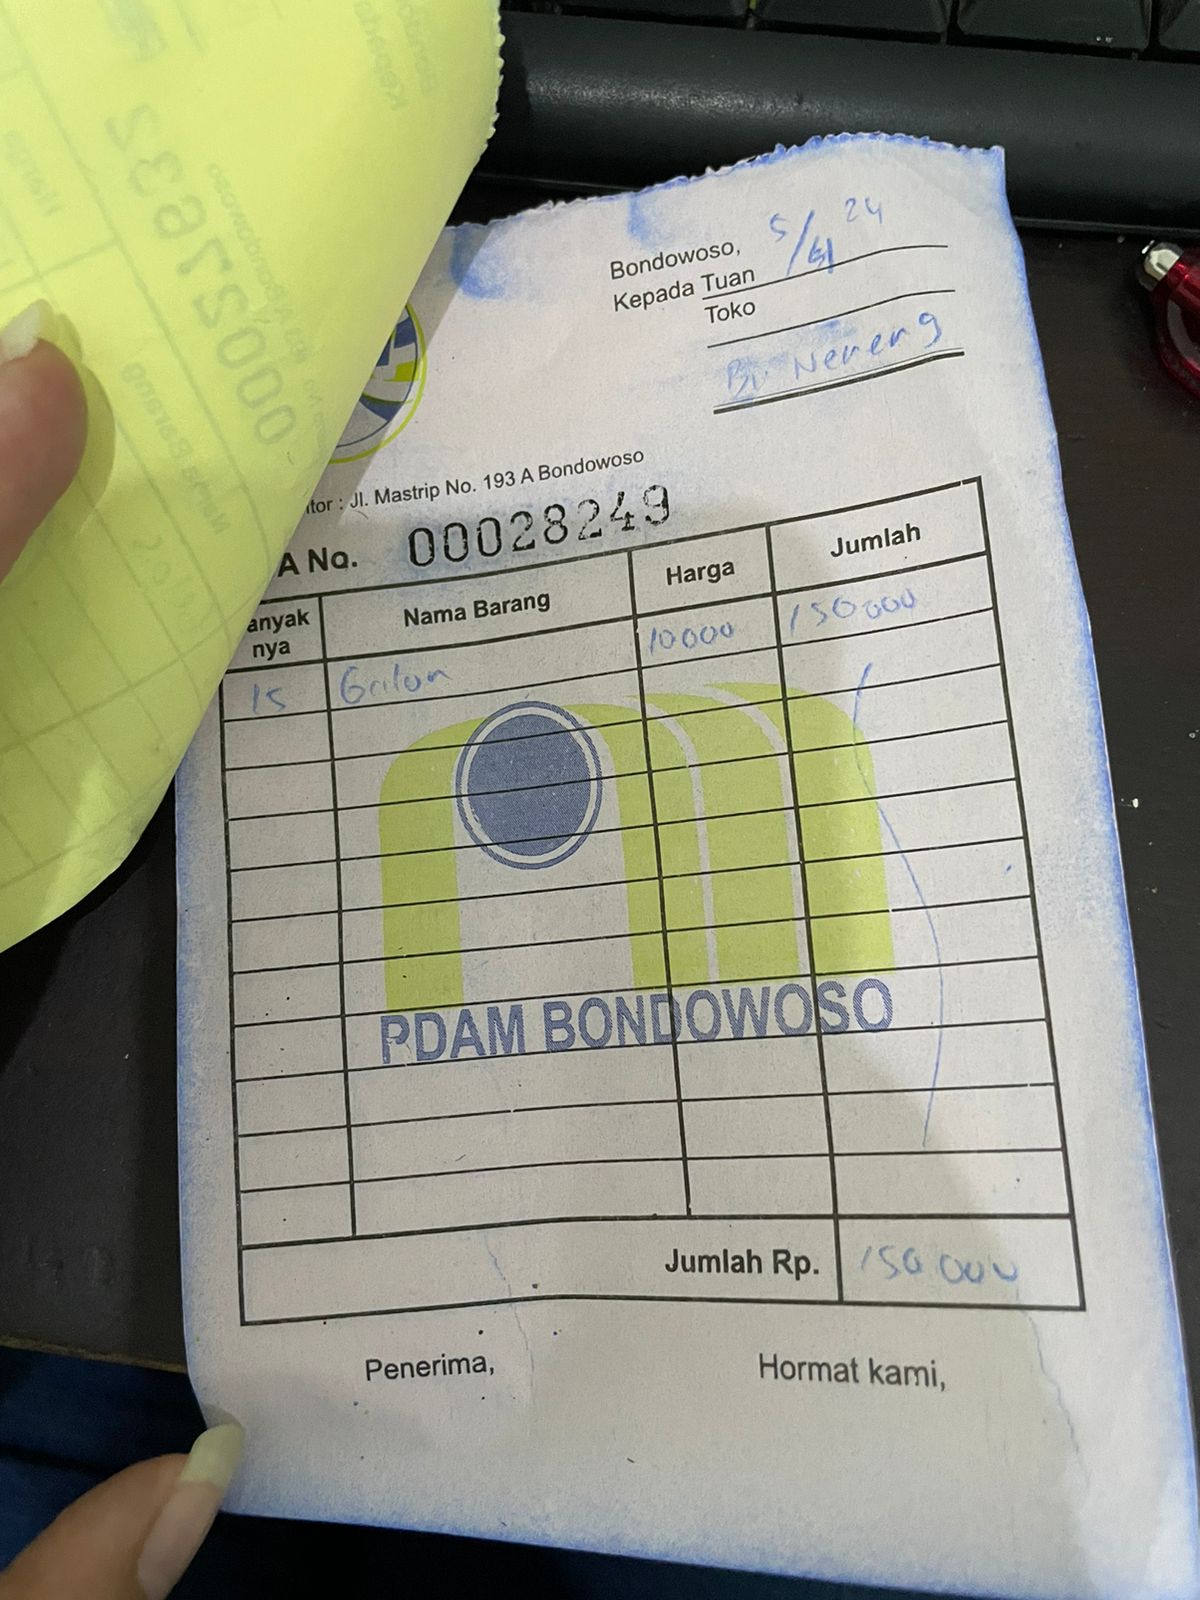 Bondowoso, 5/6 24
Kepada Tuan
Toko
Bu Nereng
tor : Jl. Mastrip No. 193 A Bondowoso
A No. 00028249
anyak nya Nama Barang Harga Jumlah
15 Galon 10000 150000
PDAM BONDOWOSO
Jumlah Rp. 150000
Penerima, Hormat kami,
00027632